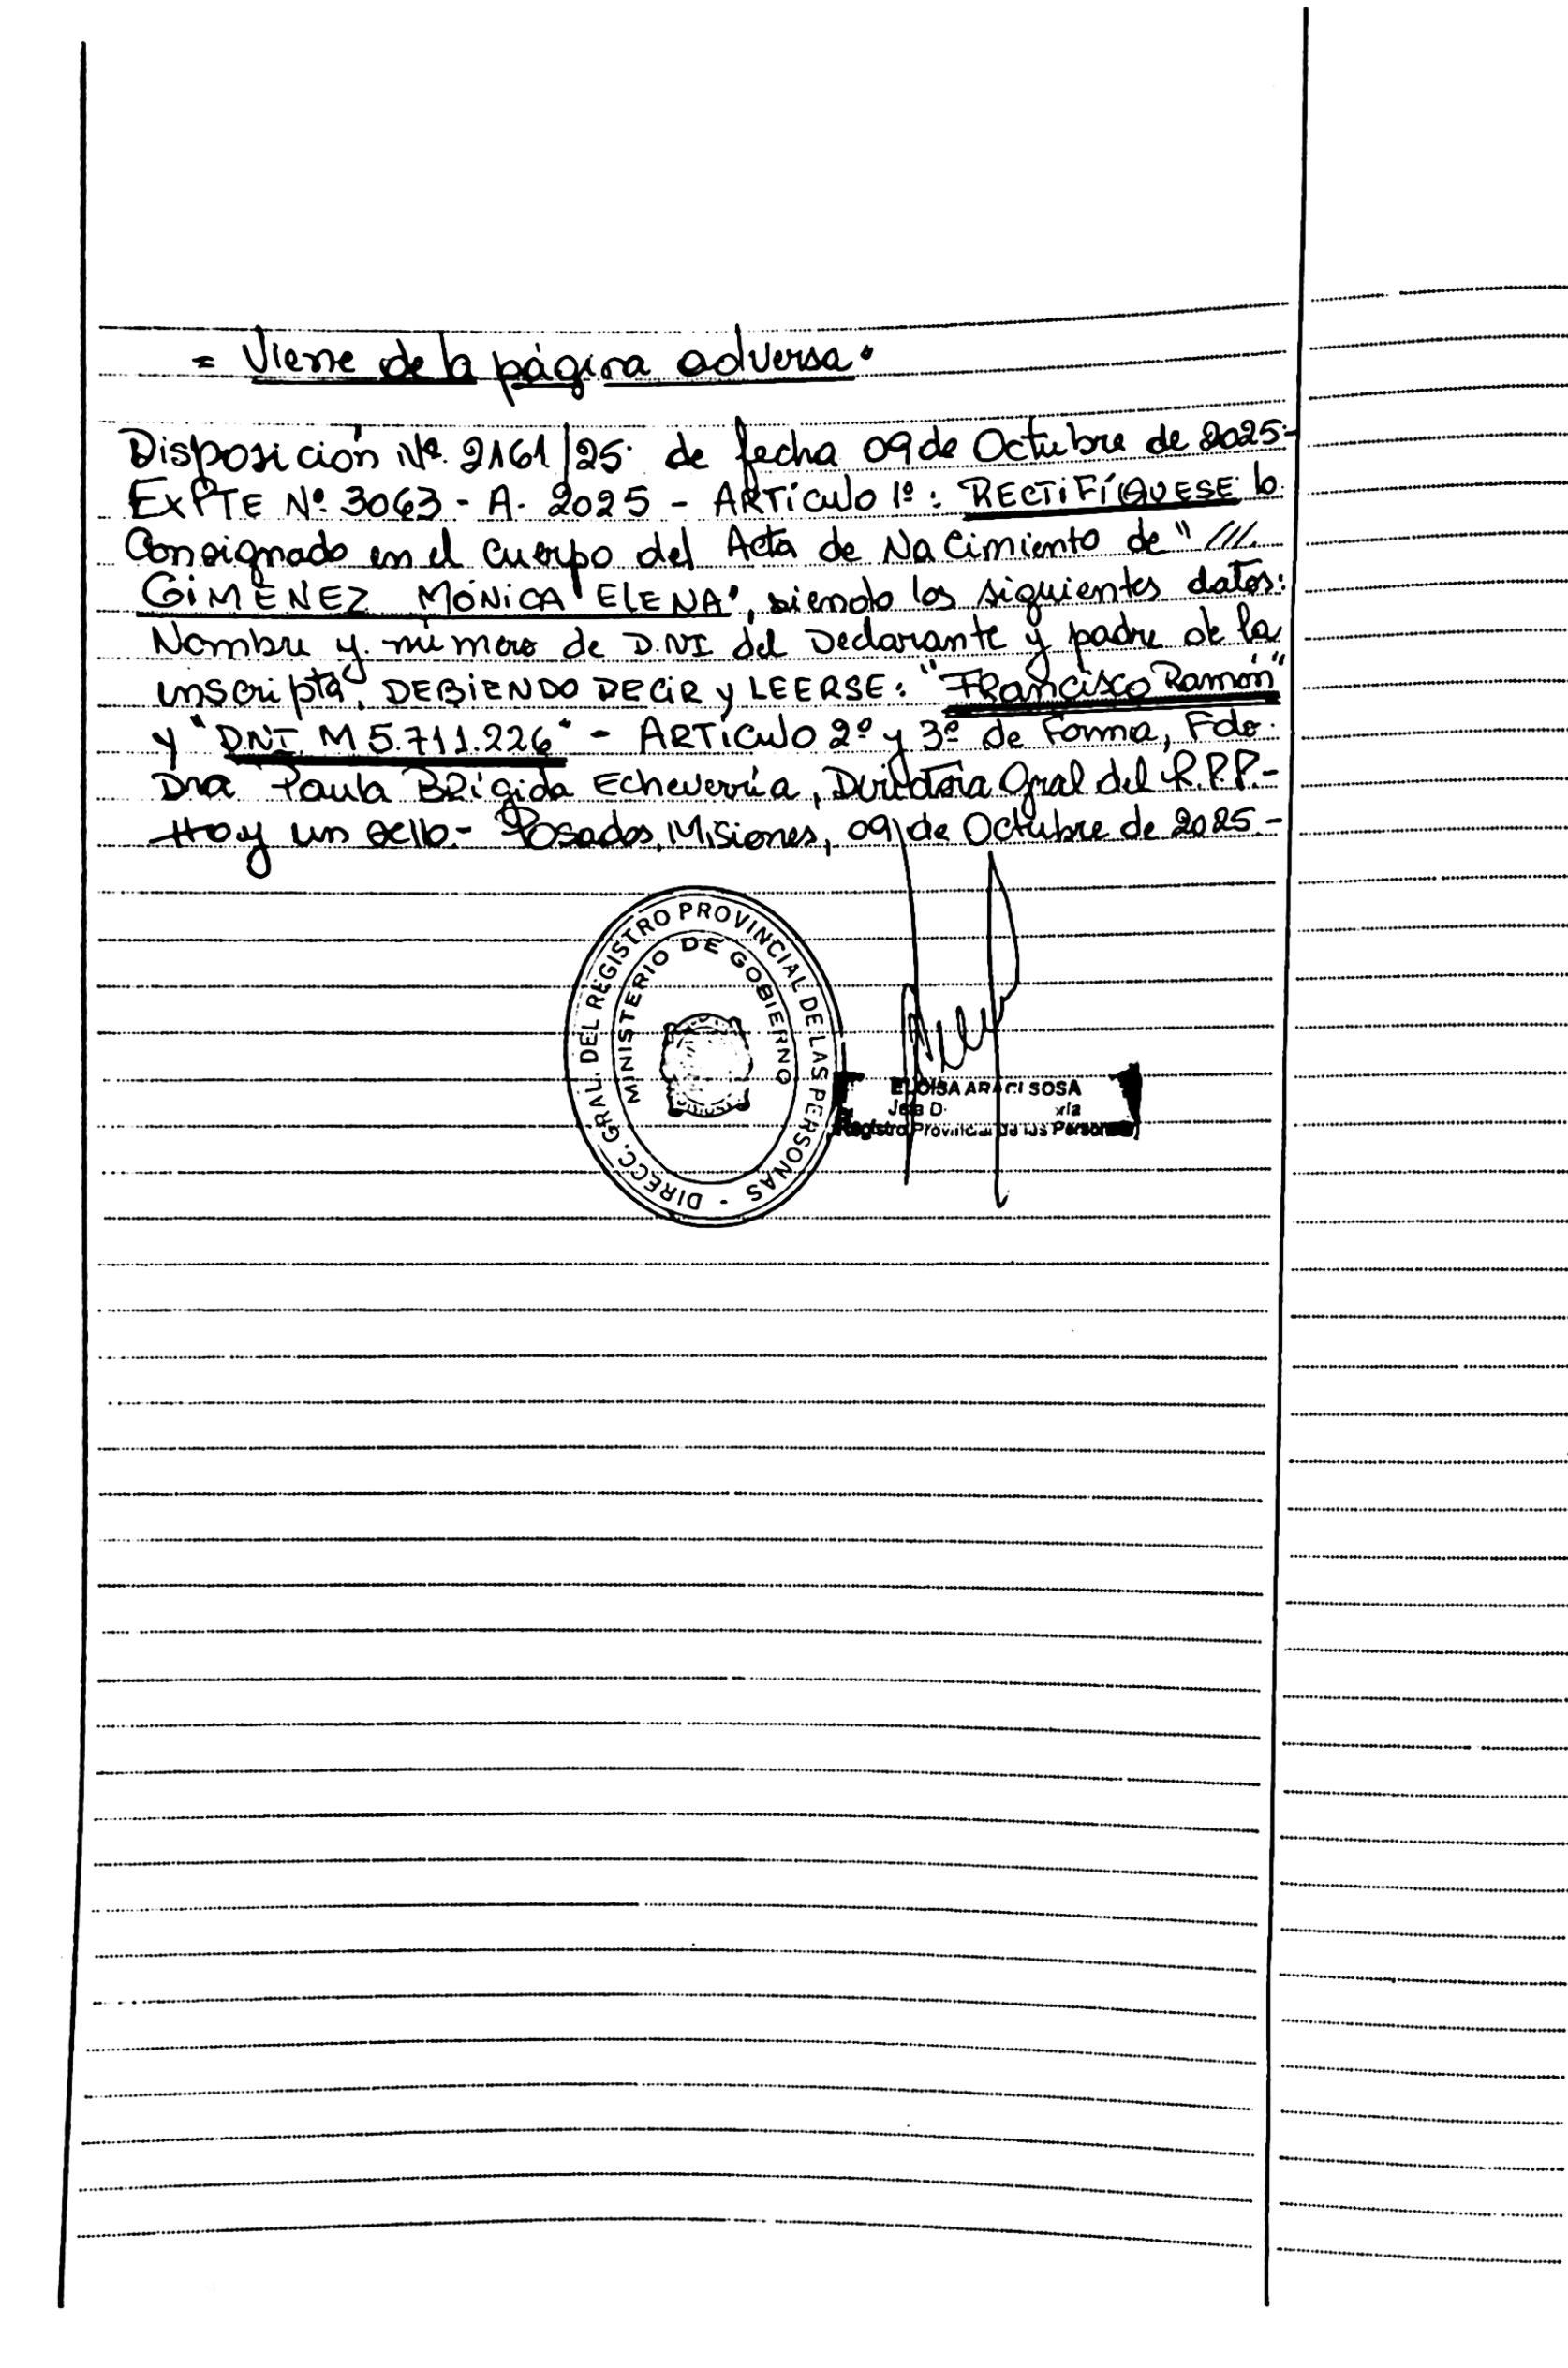 = Viene de la página adversa.
Disposición Nº 2161/25. de fecha 09 de Octubre de 2025.-
EXPTE Nº 3063 - A. 2025 - ARTÍCULO 1º: RECTIFÍQUESE lo
Consignado en el cuerpo del Acta de Nacimiento de " ///
GIMÉNEZ MÓNICA ELENA", siendo los siguientes datos:
Nombre y número de D.NI del Declarante y padre de la
inscripta, DEBIENDO DECIR y LEERSE: "Francisco Ramón"
y "DNI M 5.711.226" - ARTÍCULO 2º y 3º de Forma, Fdo.
Dra Paula Brígida Echeverría, Directora Gral del R.P.P.-
Hay un sello.- Posadas, Misiones, 09 de Octubre de 2025.-
DIRECC. GRAL. DEL REGISTRO PROVINCIAL DE LAS PERSONAS -
MINISTERIO DE GOBIERNO
ELOISA ARACI SOSA
Jefa D
Registro Provincial de las Personas